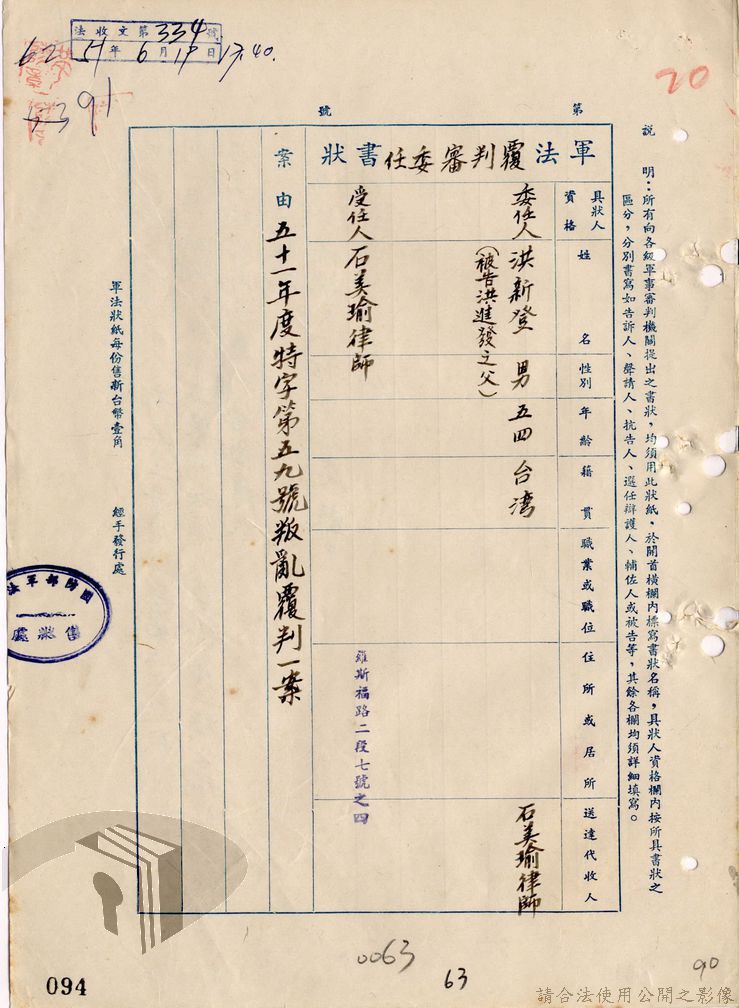 法收文第334號
51年6月19日 17.40.
91
20
第 號
說 明：所有向各級軍事審判機關提出之書狀，均須用此狀紙，於開首橫欄內標寫書狀名稱，具狀人資格欄內按所具書狀之
區分，分別書寫如告訴人、聲請人、抗告人、選任辯護人、輔佐人或被告等，其餘各欄均須詳細填寫。
軍法覆判審委任書狀
具狀人
資格
姓 名
性別
年齡
籍貫
職業或職位
住所或居所
送達代收人
委任人 洪新登 男 五四 台湾 石美瑜律師
（被告洪進發之父）
受任人 石美瑜律師 羅斯福路二段七號之四
案由 五十一年度特字第五九號叛亂覆判一案
軍法狀紙每份售新台幣壹角 經手發行處
國防部軍法
售狀處
0063
63
90
094
請合法使用公開之影像